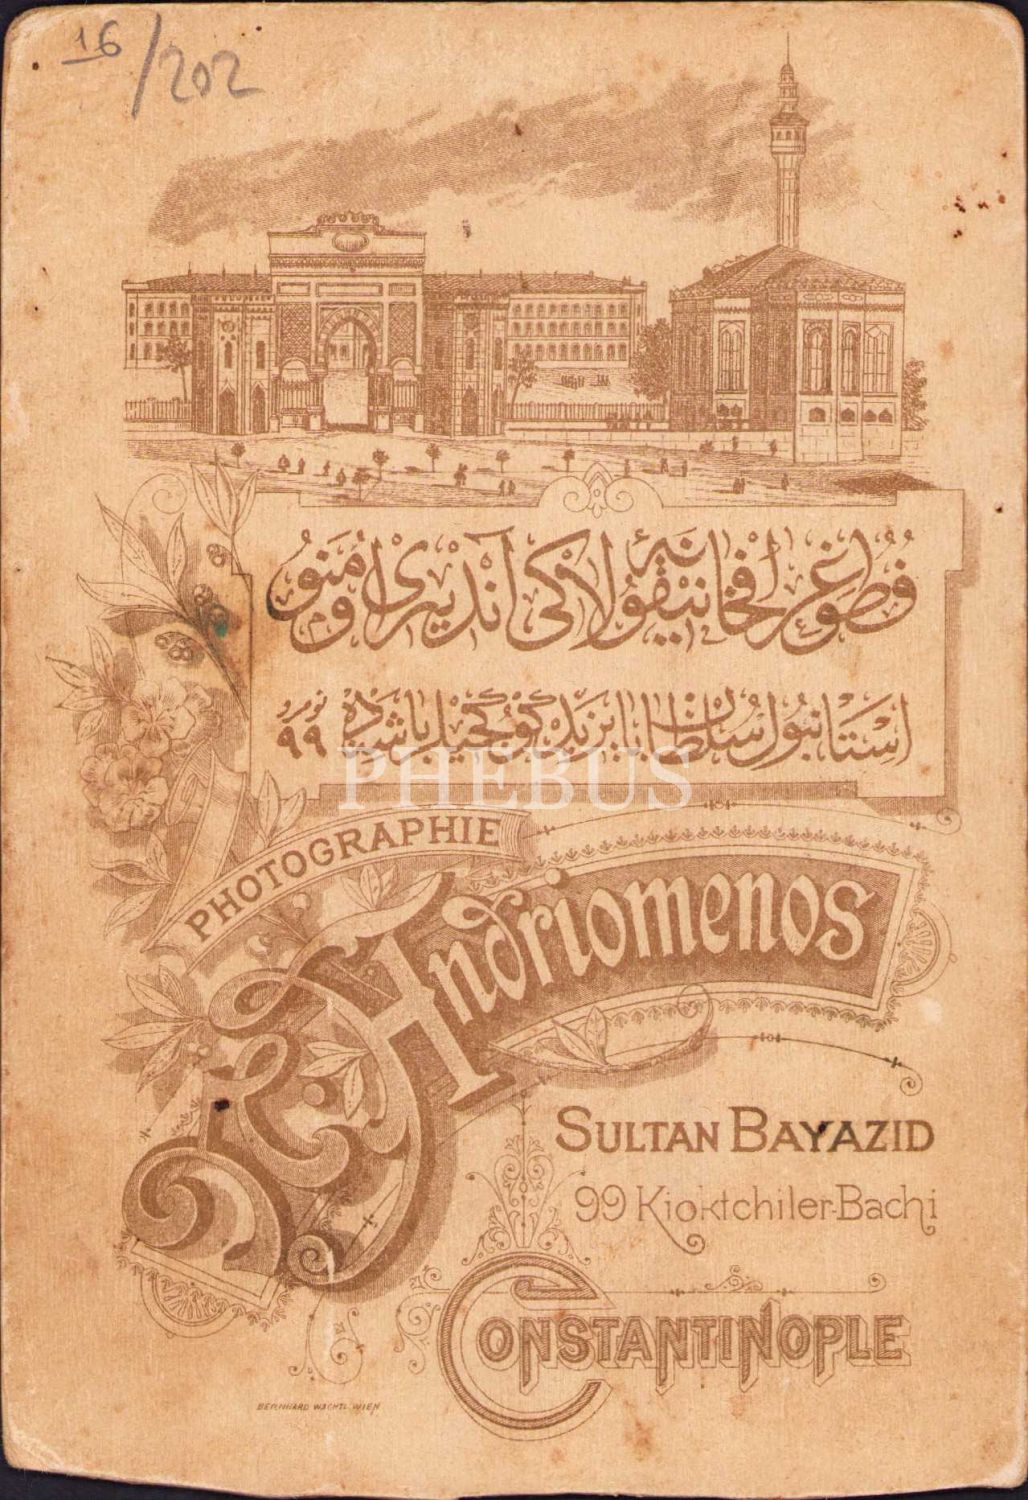 16/202
فطوغرافخانهٔ نیقولاکی آندریاومنو
استانبول سلطان بایزید کوکجیلر باشنده نومرو ٩٩
PHEBUS
PHOTOGRAPHIE
Andriomenos
SULTAN BAYAZID
99 Kioktchiler-Bachi
CONSTANTINOPLE
BERNHARD WACHTL WIEN